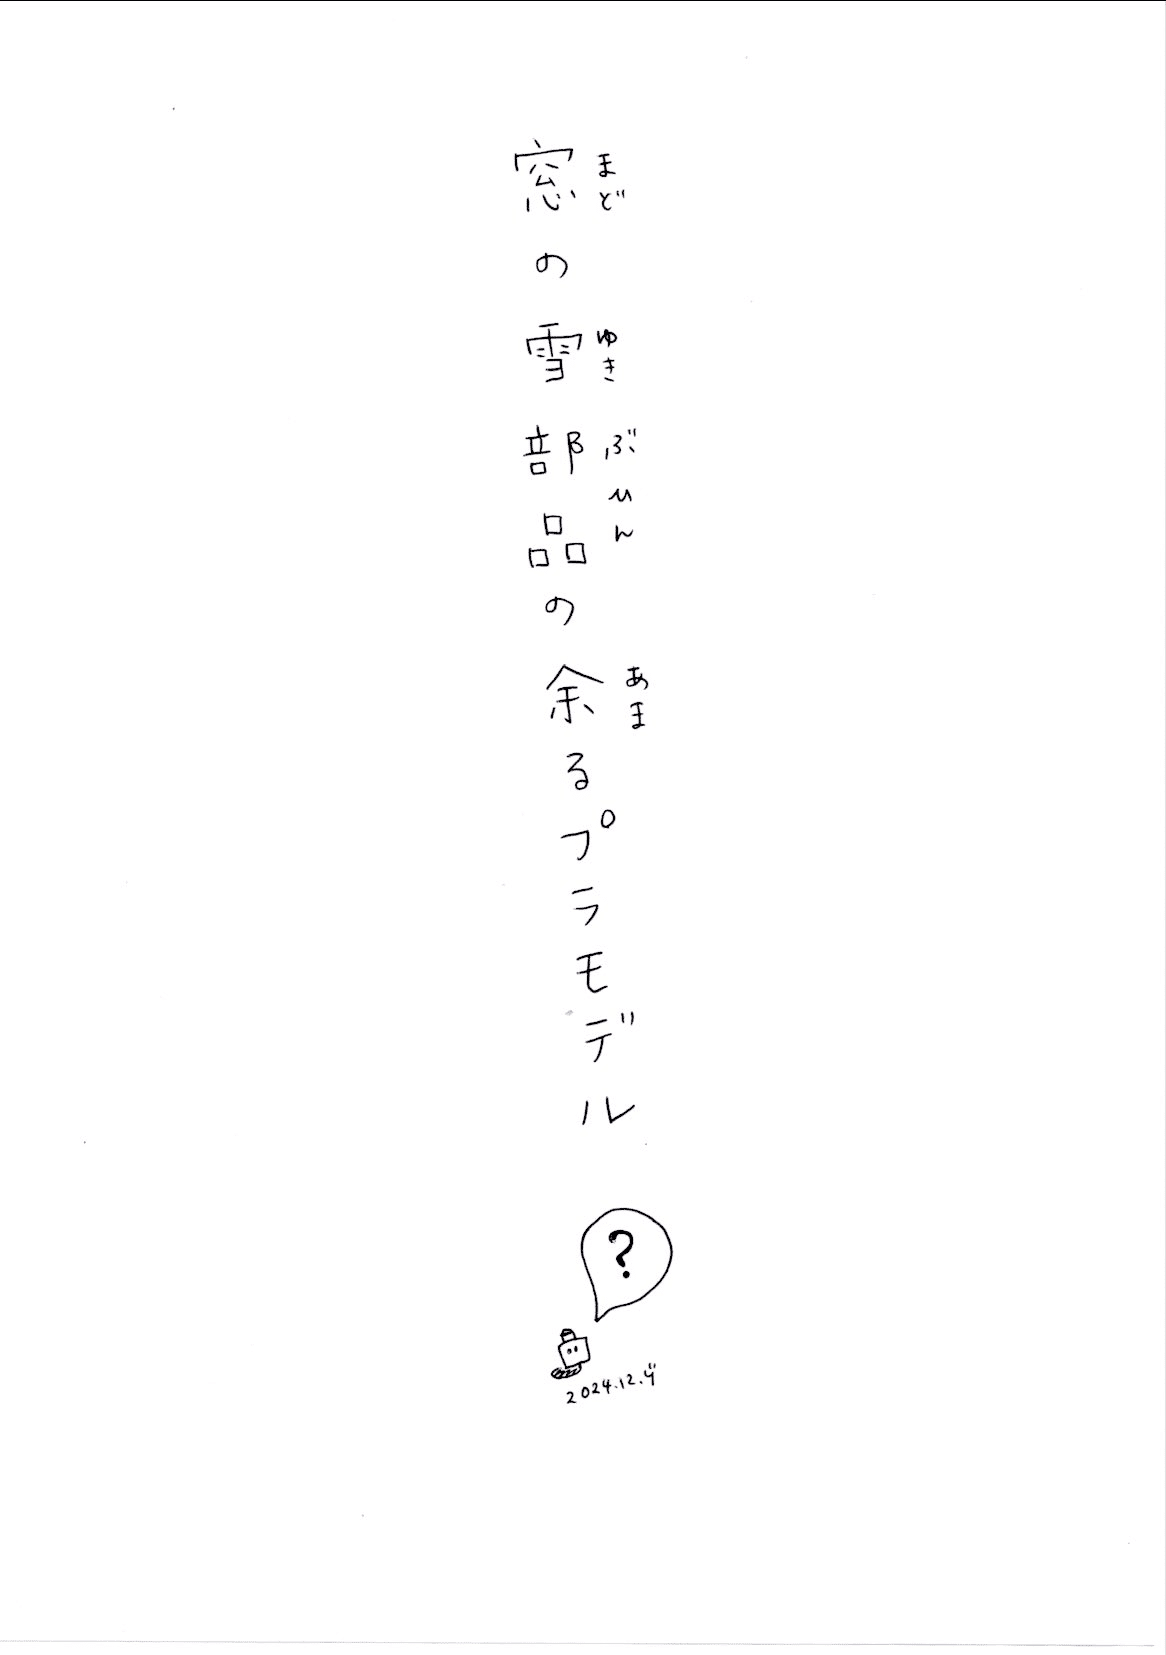 窓の雪部品の余るプラモデル
まど
ゆき
ぶひん
あま
?
2024.12.